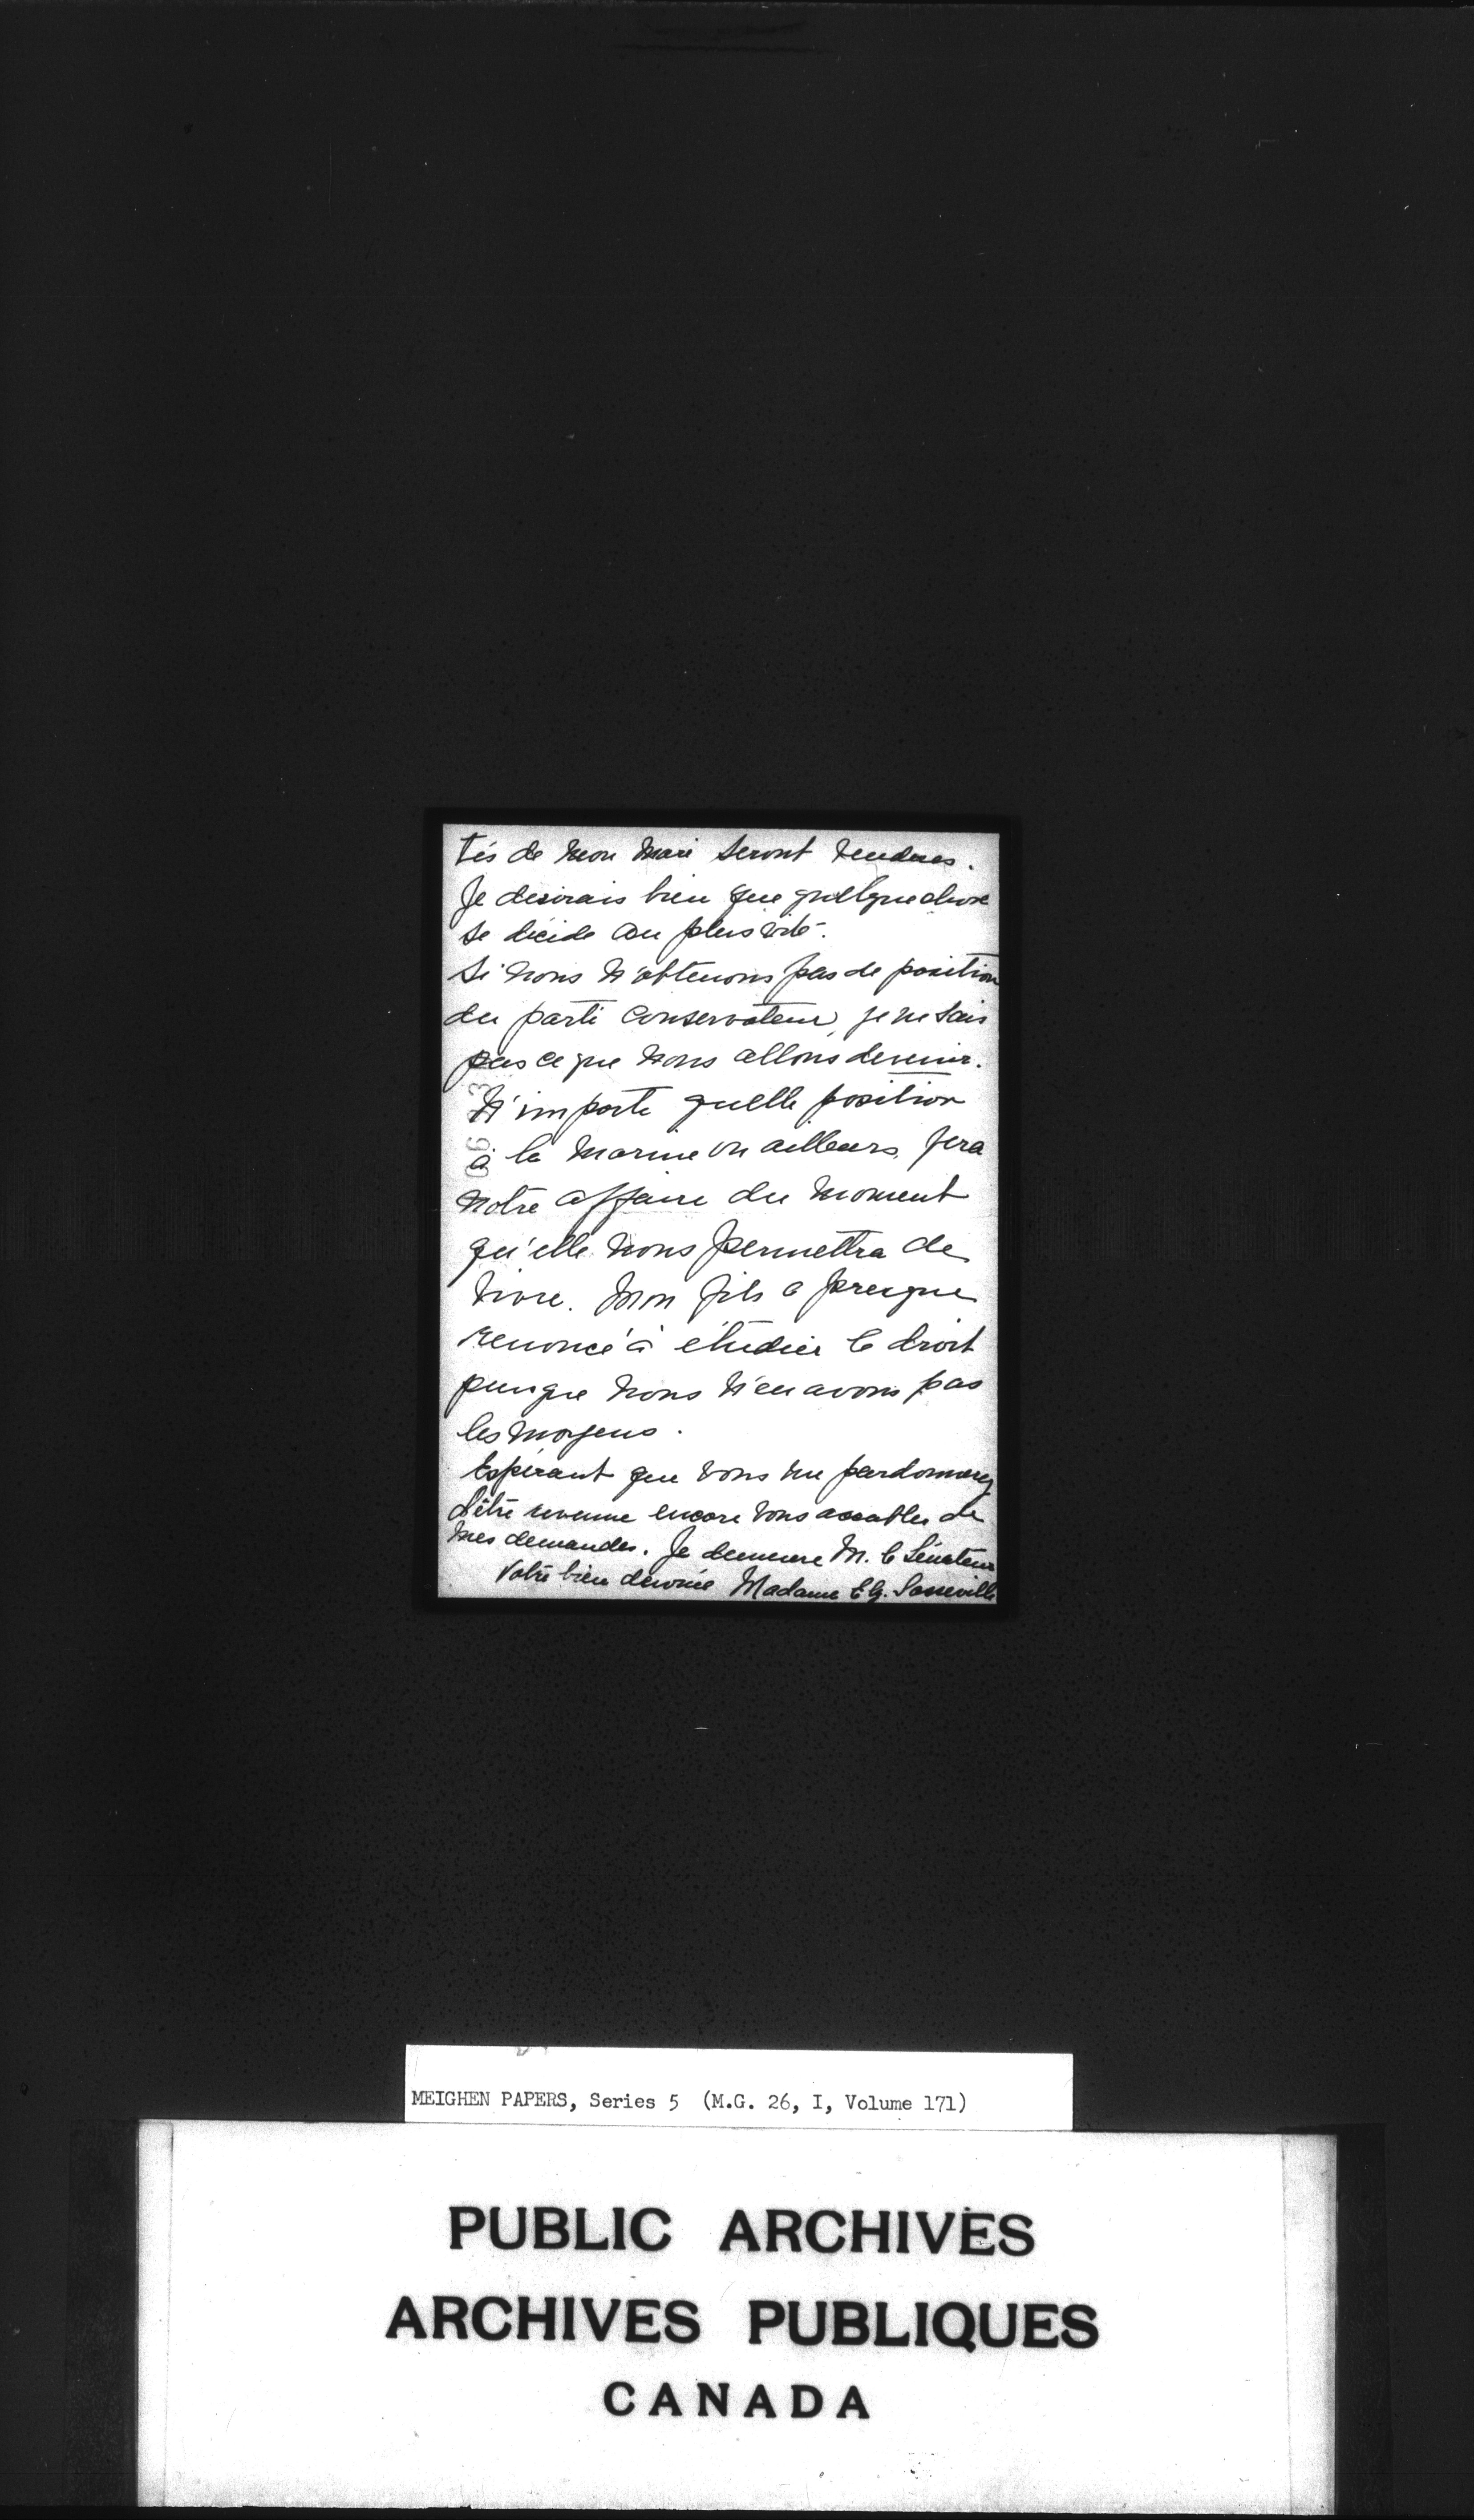 tés de mon Mari seront vendues.
Je desirais bien que quelque chose
se décide au plus vite.
Si nous n'obtenons pas de position
du parti Conservateur, je ne sais
pas ce que nous allons devenir.
N'importe quelle position
à la Marine ou ailleurs, fera
notre affaire du moment
qu'elle nous permettra de
vivre. Mon fils a presque
renoncé à étudier le droit
puisque nous n'en avons pas
les moyens.
Espérant que vous me pardonnerez
d'être revenue encore vous accabler de
mes demandes. Je demeure M. le Sénateur
Votre bien dévouée Madame Elz. Sasseville
MEIGHEN PAPERS, Series 5 (M.G. 26, I, Volume 171)
PUBLIC ARCHIVES
ARCHIVES PUBLIQUES
CANADA